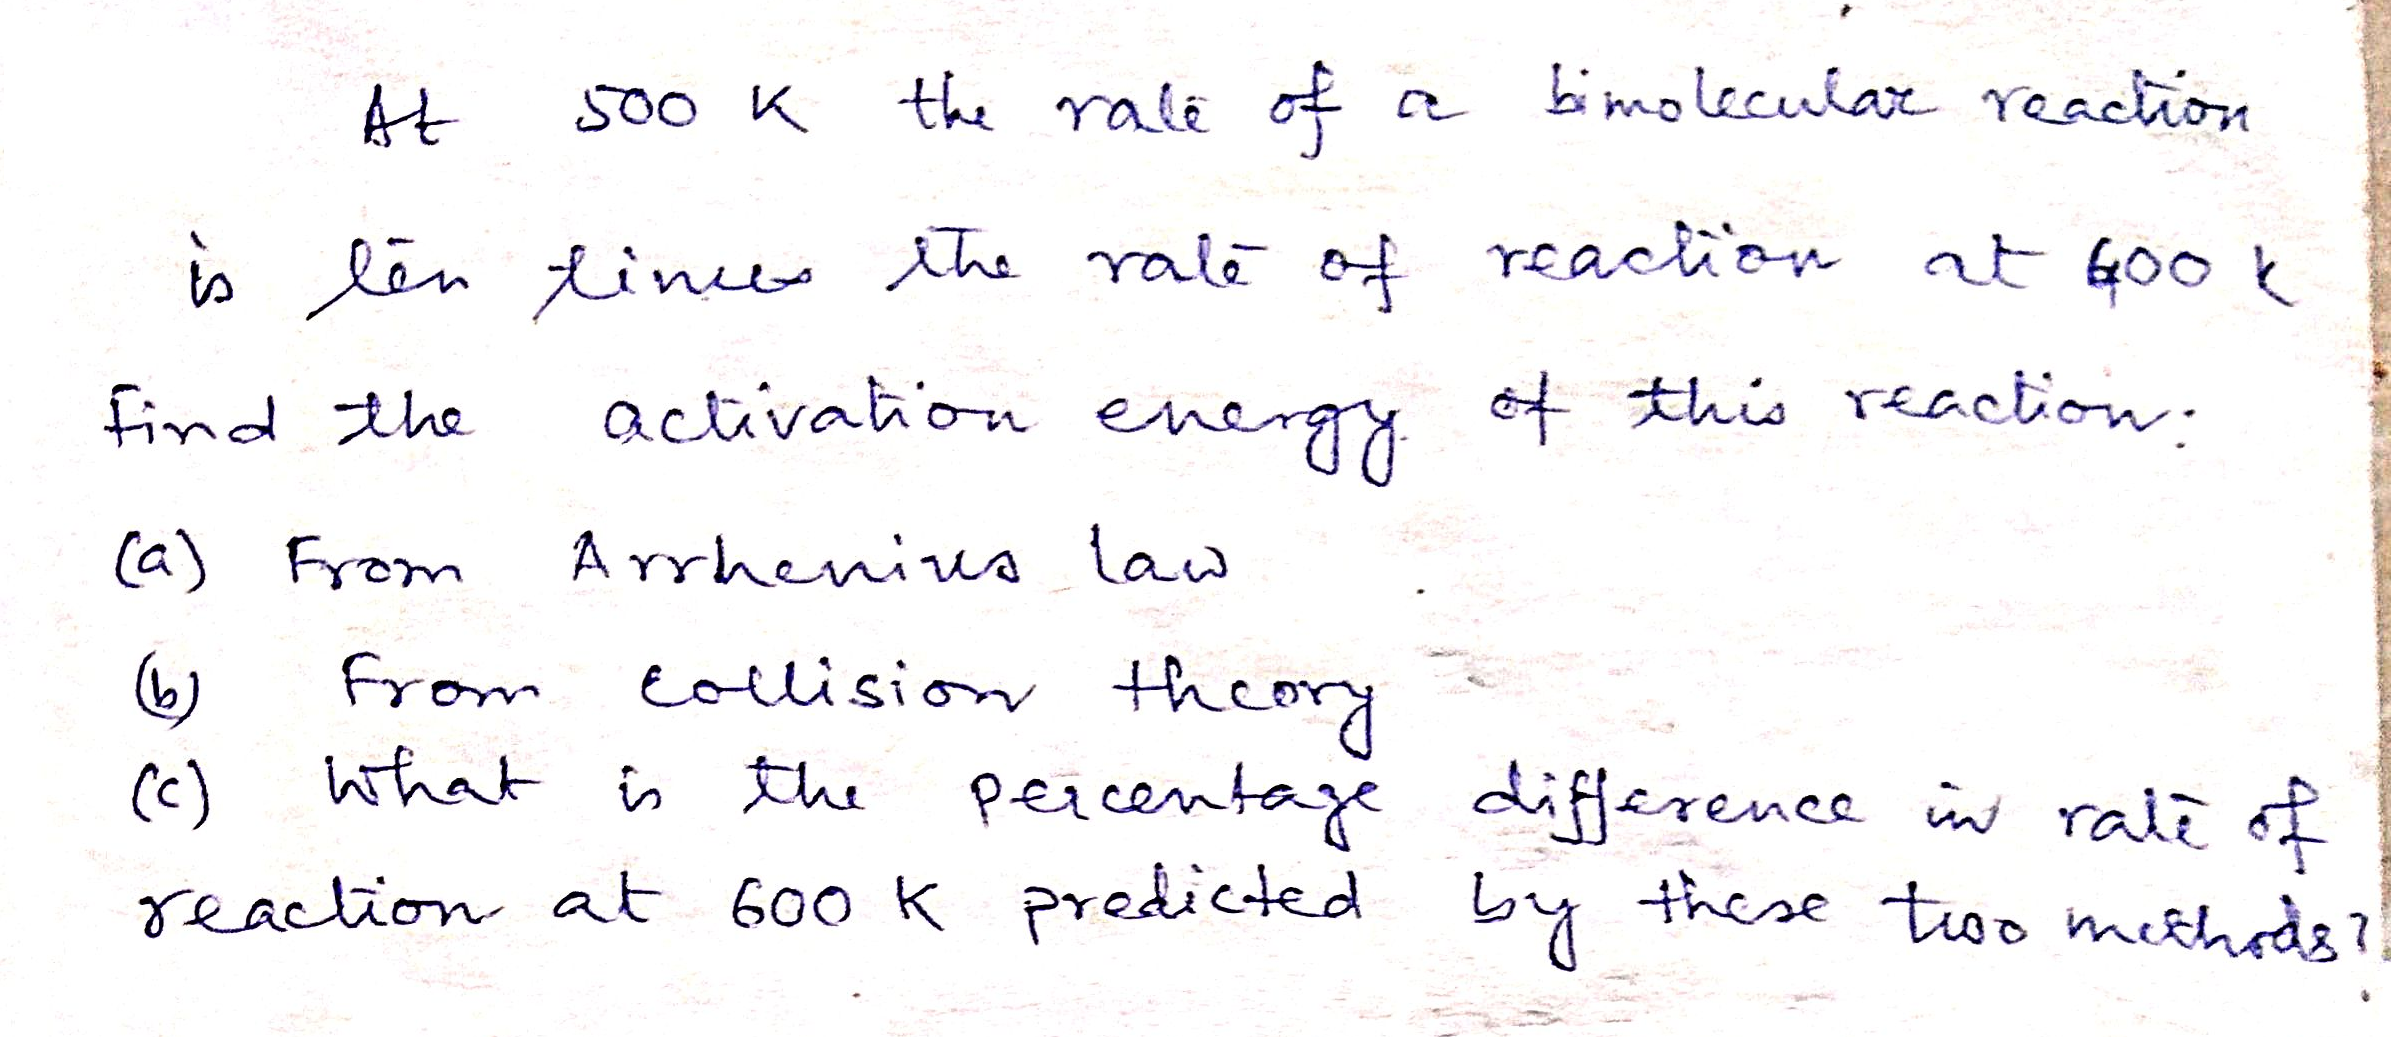 At 500 K the rate of a bimolecular reaction
is ten times the rate of reaction at 400 K
Find the activation energy of this reaction:
(a) From Arrhenius law
(b) From collision theory
(c) What is the percentage difference in rate of
reaction at 600 K predicted by these two methods?